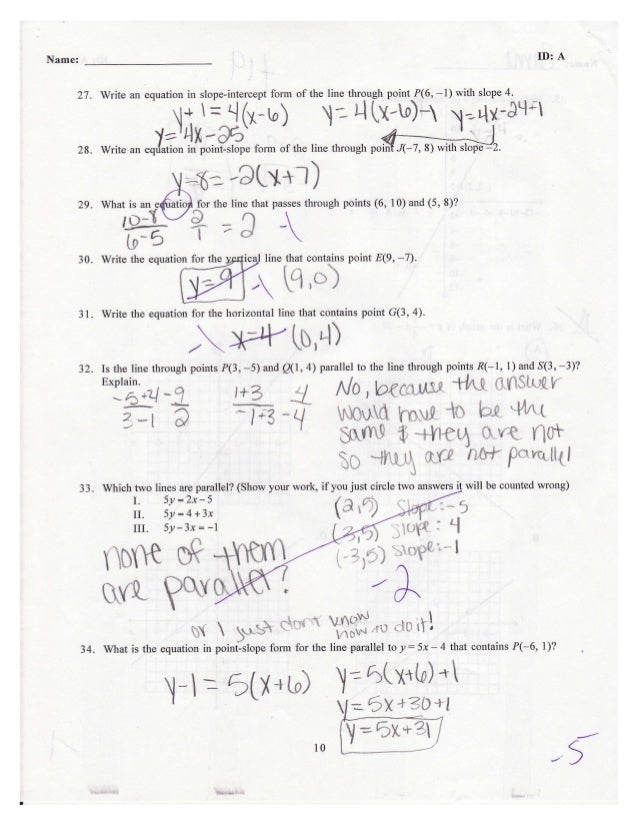 Name:
ID: A
27. Write an equation in slope-intercept form of the line through point P(6, −1) with slope 4.
y+1=4(x-6) y=4(x-6)-1 y=4x-24-1
y=4x-25
28. Write an equation in point-slope form of the line through point J(−7, 8) with slope −2.
y-8=-2(x+7)
29. What is an equation for the line that passes through points (6, 10) and (5, 8)?
10-8 2 = 2 -1
6-5 1
30. Write the equation for the vertical line that contains point E(9, −7).
y=9 -1 (9,0)
31. Write the equation for the horizontal line that contains point G(3, 4).
-1 x=4 (0,4)
32. Is the line through points P(3, −5) and Q(1, 4) parallel to the line through points R(−1, 1) and S(3, −3)?
Explain.
-5+4 -9 1+3 4 No, because the answer
3-1 2 -1+3 -4 would have to be the
same & they are not
so they are not parallel
33. Which two lines are parallel? (Show your work, if you just circle two answers it will be counted wrong)
I. 5y = 2x − 5
II. 5y = 4 + 3x
III. 5y − 3x = −1
(2,5) Slope: -5
(3,5) Slope: 4
(-3,5) Slope: -1
none of them
are parallel?
-2
or I just dont know
how to do it!
34. What is the equation in point-slope form for the line parallel to y = 5x − 4 that contains P(−6, 1)?
y-1=5(x+6) y=5(x+6)+1
y=5x+30+1
y=5x+31
10
-5